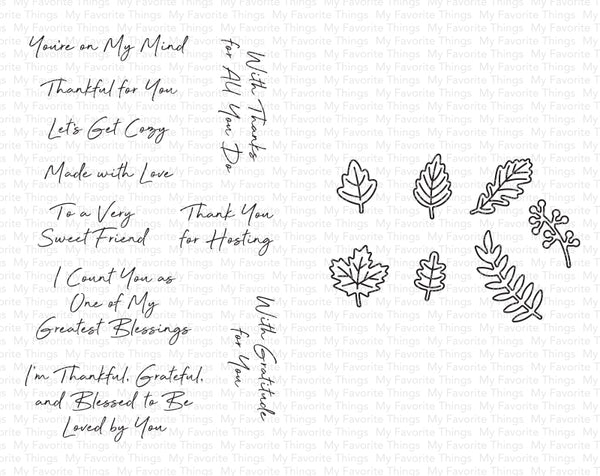 You're on My Mind
Thankful for You
Let's Get Cozy
Made with Love
To a Very
Sweet Friend
Thank You
for Hosting
I Count You as
One of My
Greatest Blessings
I'm Thankful, Grateful,
and Blessed to Be
Loved by You
With Thanks
for All You Do
With Gratitude
for You
My Favorite Things